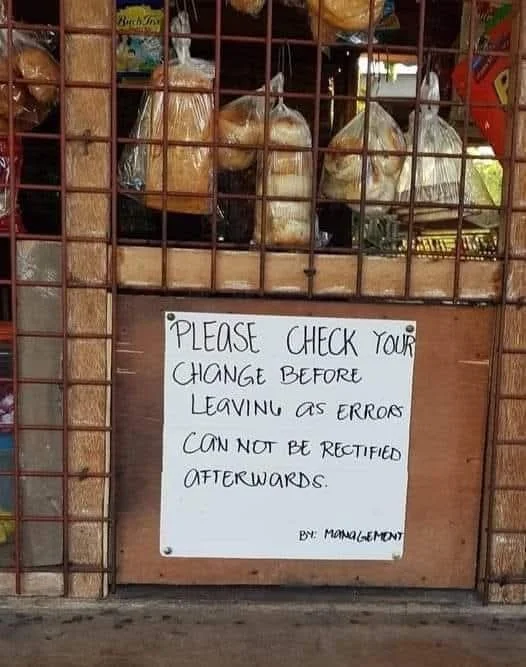 PLEASE CHECK YOUR
CHANGE BEFORE
LEAVING AS ERRORS
CAN NOT BE RECTIFIED
AFTERWARDS.
BY: MANAGEMENT